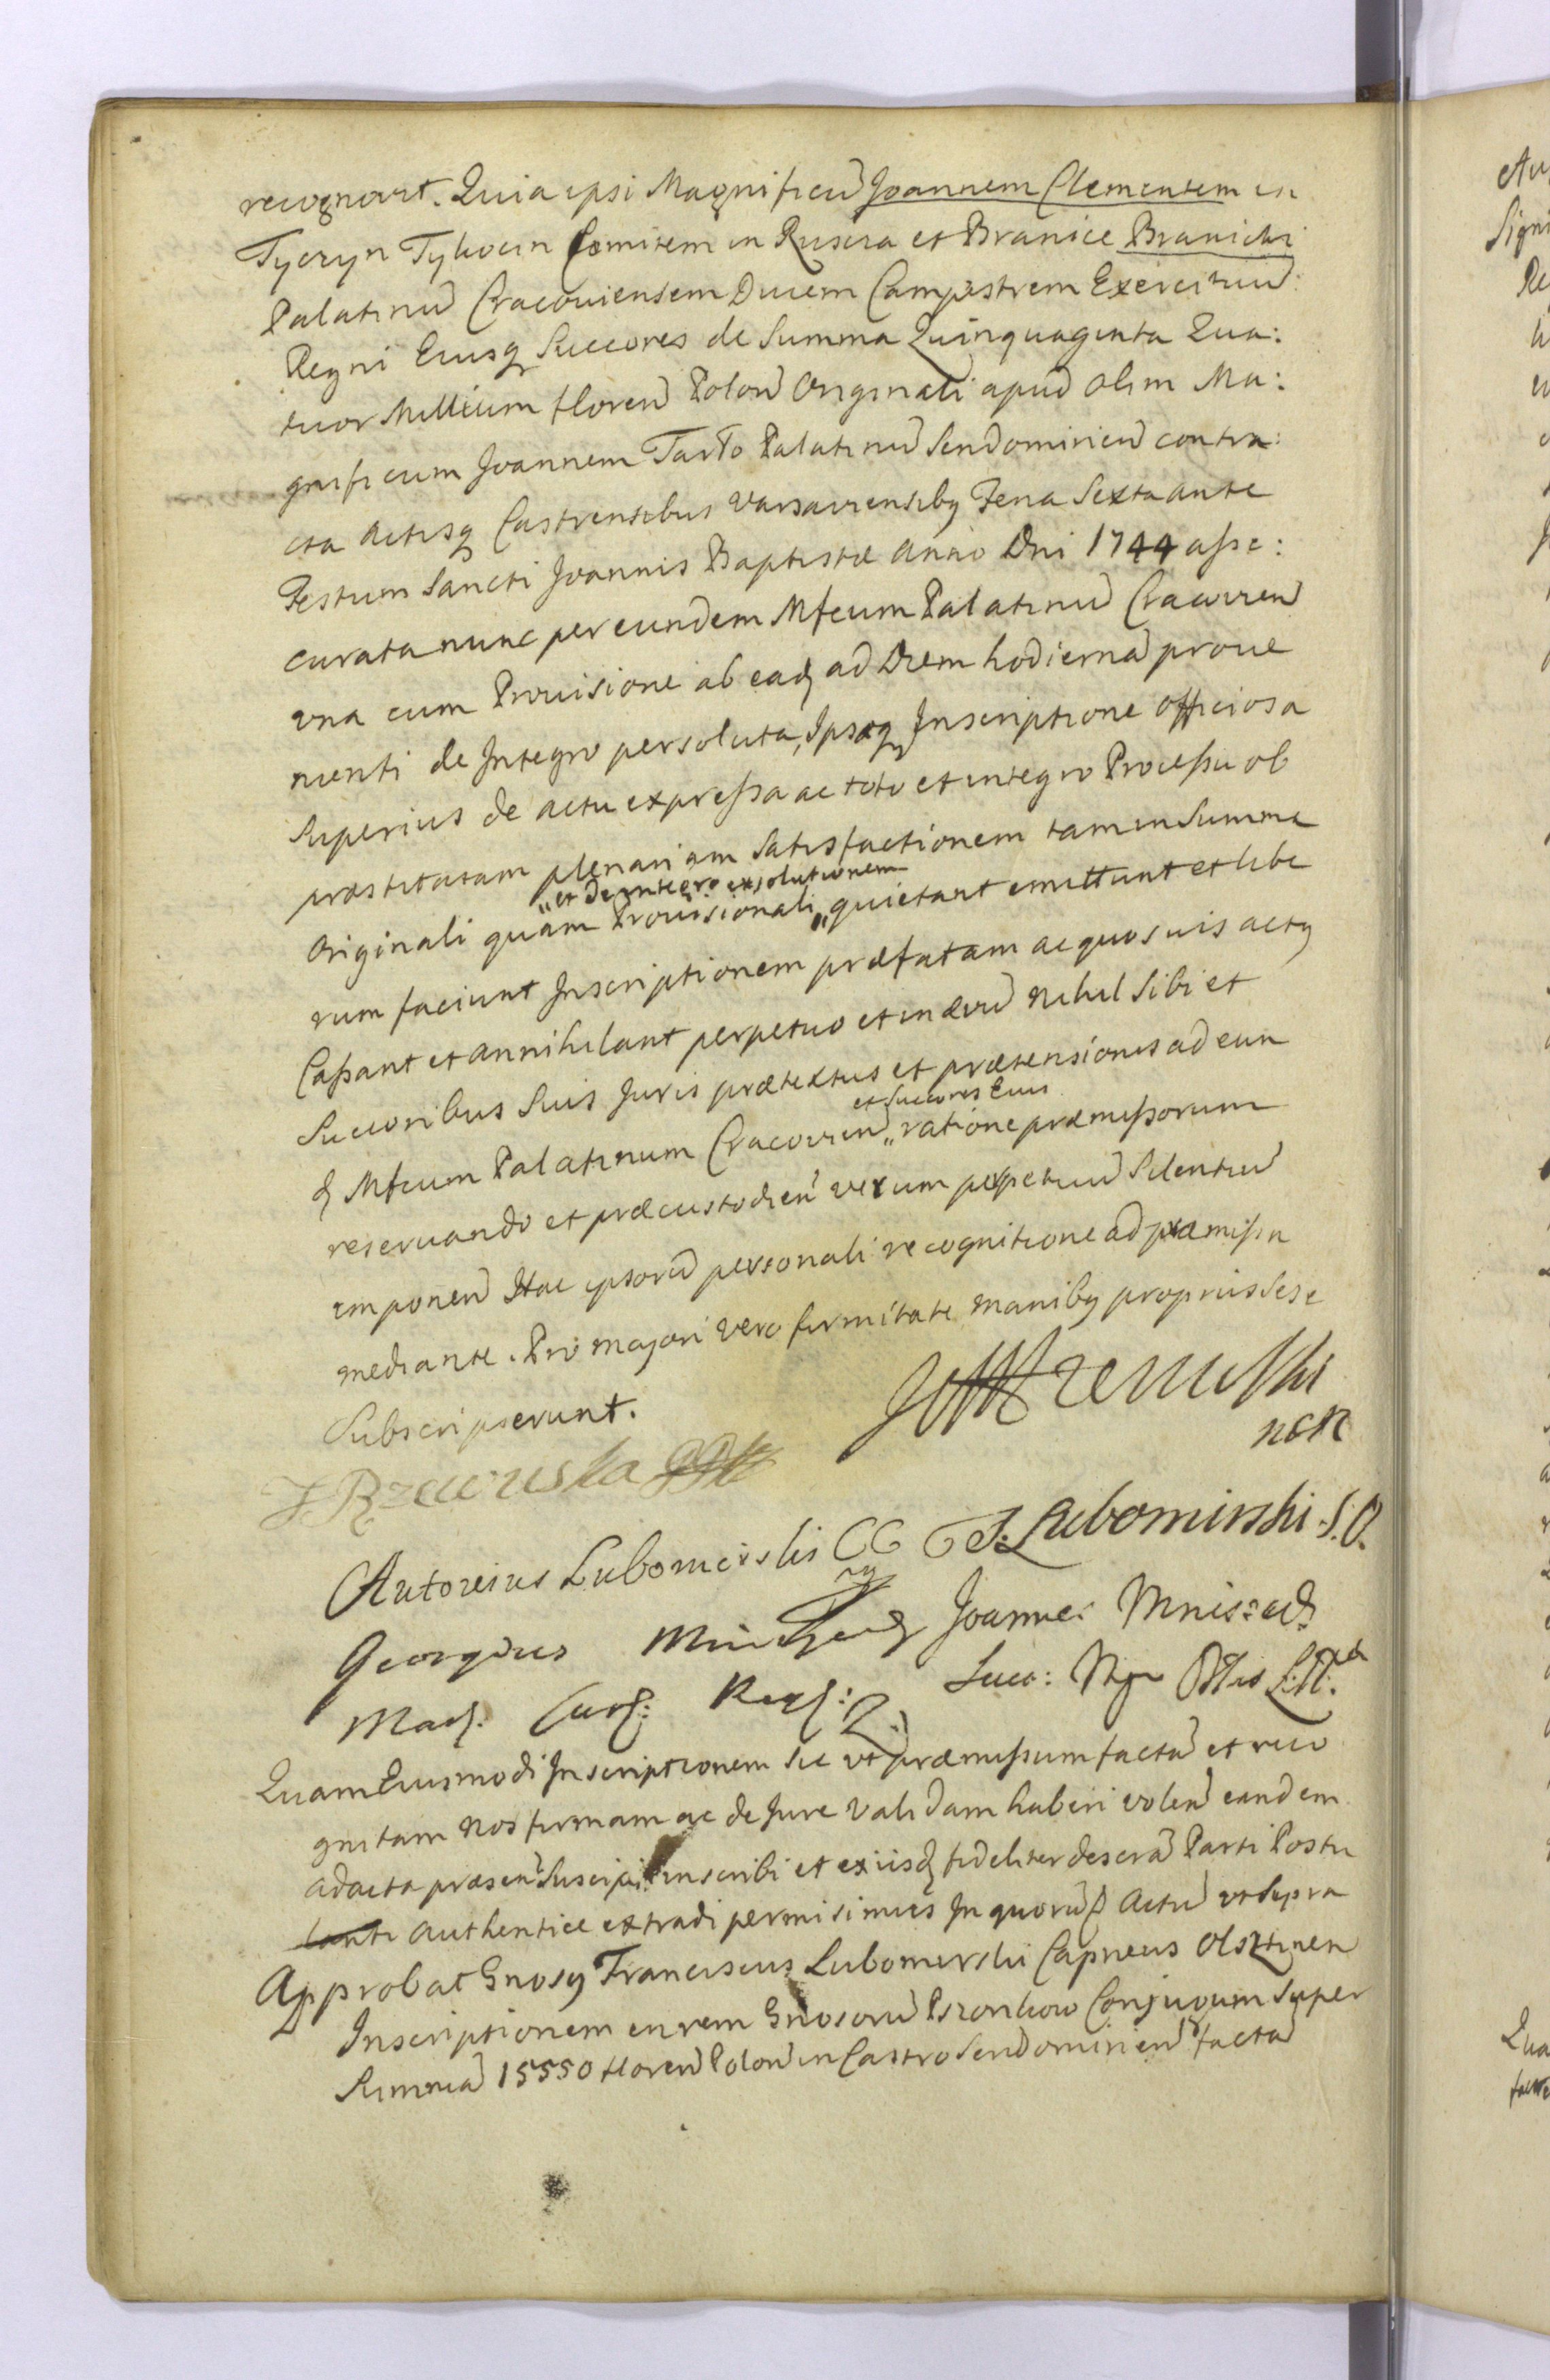 recognovit. Quia ipsi Magnificū Joannem Clementem in
Tyczyn Tykocin Comitem in Ruscza et Branice Branicki
Palatinū Cracoviensem Ducem Campestrem Exercituū
Regni Eiusq Succores de Summa Quinquaginta Qua:
tuor Millium florenū Polonū Originali apud olim Ma:
gnificum Joannem Tarło Palatinū Sendomirienū contra:
cta Actisq Castrensibus Varsaviensibq Feria Sexta ante
Festum Sancti Joannis Baptistæ Anno Dni 1744 asse:
curata nunc per eundem Mfcum Palatinū Cracovien
una cum Provisione ab eadq ad Diem hodiernā prove
nienti de Integro persoluta, Ipsaq Inscriptione officiosa
Superius de actu expressa ac toto et integro Processu ob
præstitatam plenariam Satisfactionem tam in Summa
„et de integro exsolutionem
Originali quàm Provisionali „ quietant emittunt et libe
rum faciunt Inscriptionem præfatam ac quos vis actq
Cassant et annihilant perpetuo et in ævū nihil Sibi et
Succoribus Suis Juris prætextus et prætensionis ad eun
et Succores Eius
dq Mfcum Palatinum Cracovien „ ratione præmissorum
reservando et præcustodienū verum perpetuū Silentiū
imponenū Hac ipsorū personali recognitione ad præmissa
mediante. Pro majori vero firmitate manibq propriis Sese
Subscripserunt.
NCK
J Rzewuska
Antonius Lubomirski CC J. Lubomirski S.C.
Georgius Mniszech Joannes Mniszech
Mar. Cur. Reg: Succ:
Quam Eiusmodi Inscriptionem Sic ut præmissum factā et reco
gnitam Nos firmam ac de Jure Validam haberi volenū eandem
ad acta præsenū Suscipi inscribi et ex iisdq fideliter descrā Parti Postu
lanti Authentice extradi permisimus In quorū Actū ut Supra
Approbat Gnosq Franciscus Lubomirski Capneus Olsztinen
Inscriptionem in rem Gnosorū Conjugum Super
Summā 15550 florenū Polonū in Castro Sendomirienū factā